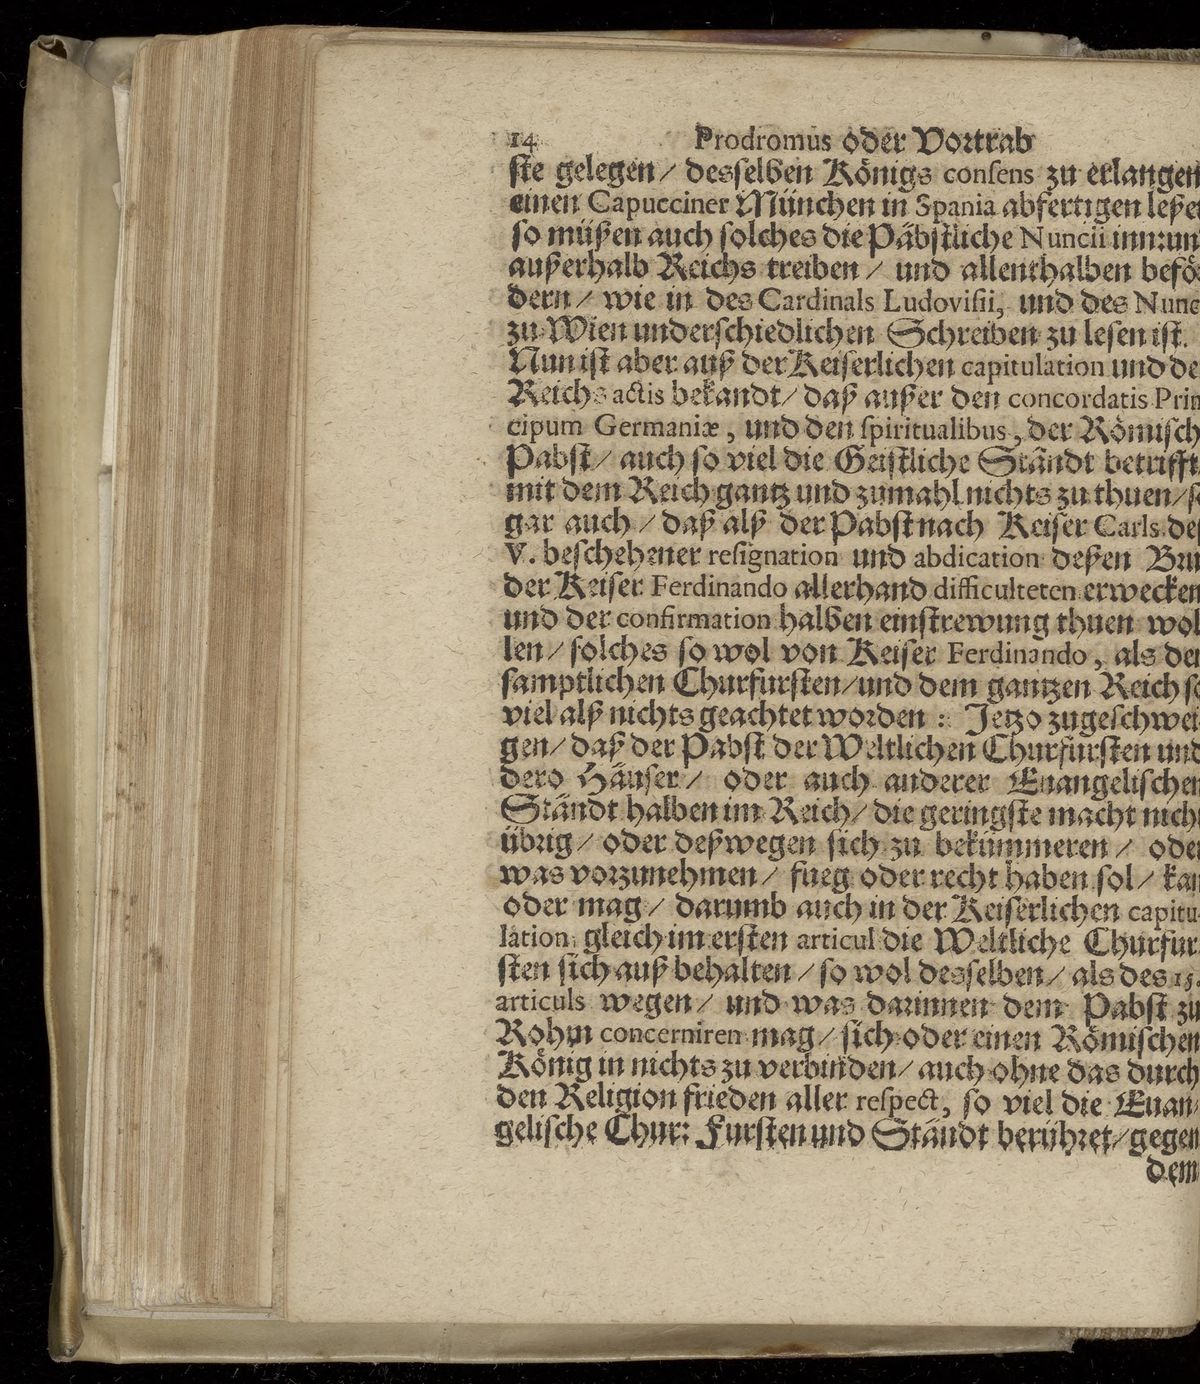 14 Prodromus oder Vortrab
ste gelegen / desselben Königs consens zu erlangen
einen Capucciner München in Spania abfertigen leße
so müßen auch solches die Päbstliche Nuncii inn: un
außerhalb Reichs treiben / und allenthalben beför
dern / wie in des Cardinals Ludovisii, und des Nunc
zu Wien underschiedlichen Schreiben zu lesen ist.
Nun ist aber auß der Keiserlichen capitulation und de
Reichs actis bekandt / daß außer den concordatis Prin
cipum Germaniæ, und den spiritualibus, der Römisch
Pabst / auch so viel die Geistliche Ständt betrifft
mit dem Reich gantz und zumahl nichts zu thuen / s
gar auch / daß alß der Pabst nach Keiser Carls des
V. beschehener resignation und abdication deßen Bru
der Keiser Ferdinando allerhand difficulteten erwecken
und der confirmation halben einstrewung thuen wol
len / solches so wol von Keiser Ferdinando, als den
samptlichen Churfursten / und dem gantzen Reich so
viel alß nichts geachtet worden: Jetzo zugeschwei
gen / daß der Pabst der Weltlichen Churfursten und
dero Häuser / oder auch anderer Euangelischen
Ständt halben im Reich / die geringste macht nicht
übrig / oder deßwegen sich zu bekümmeren / oder
was vorzunehmen / fueg oder recht haben sol / kan
oder mag / darumb auch in der Keiserlichen capitu-
lation gleich im ersten articul die Weltliche Churfur
sten sich auß behalten / so wol desselben / als des 15.
articuls wegen / und was darinnen dem Pabst zu
Rohm concerniren mag / sich oder einen Römischen
König in nichts zu verbinden / auch ohne das durch
den Religion frieden aller respect, so viel die Euan-
gelische Chur: Fursten und Ständt berühret / gegen
dem